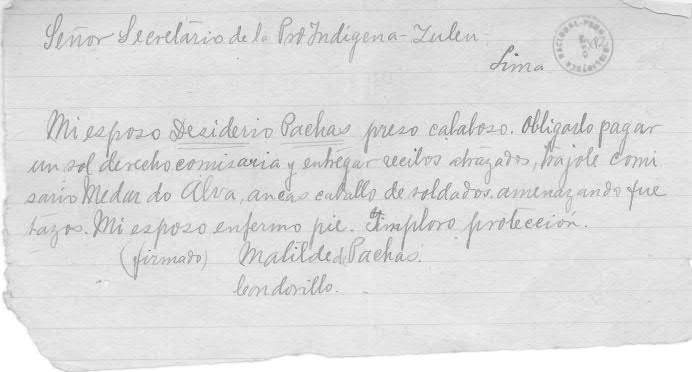 Señor Secretario de la Pro Indígena - Zulen
Lima
Mi esposo Desiderio Pachas preso calaboso. Obligado pagar
un sol derecho comisaria y entregar recibos atrazados, trájole comi
sario Medardo Alva, ancas caballo de soldados amenazando fue
tazos. Mi esposo enfermo pie. Imploro protección.
(firmado) Matilde d. Pachas.
Condorillo.